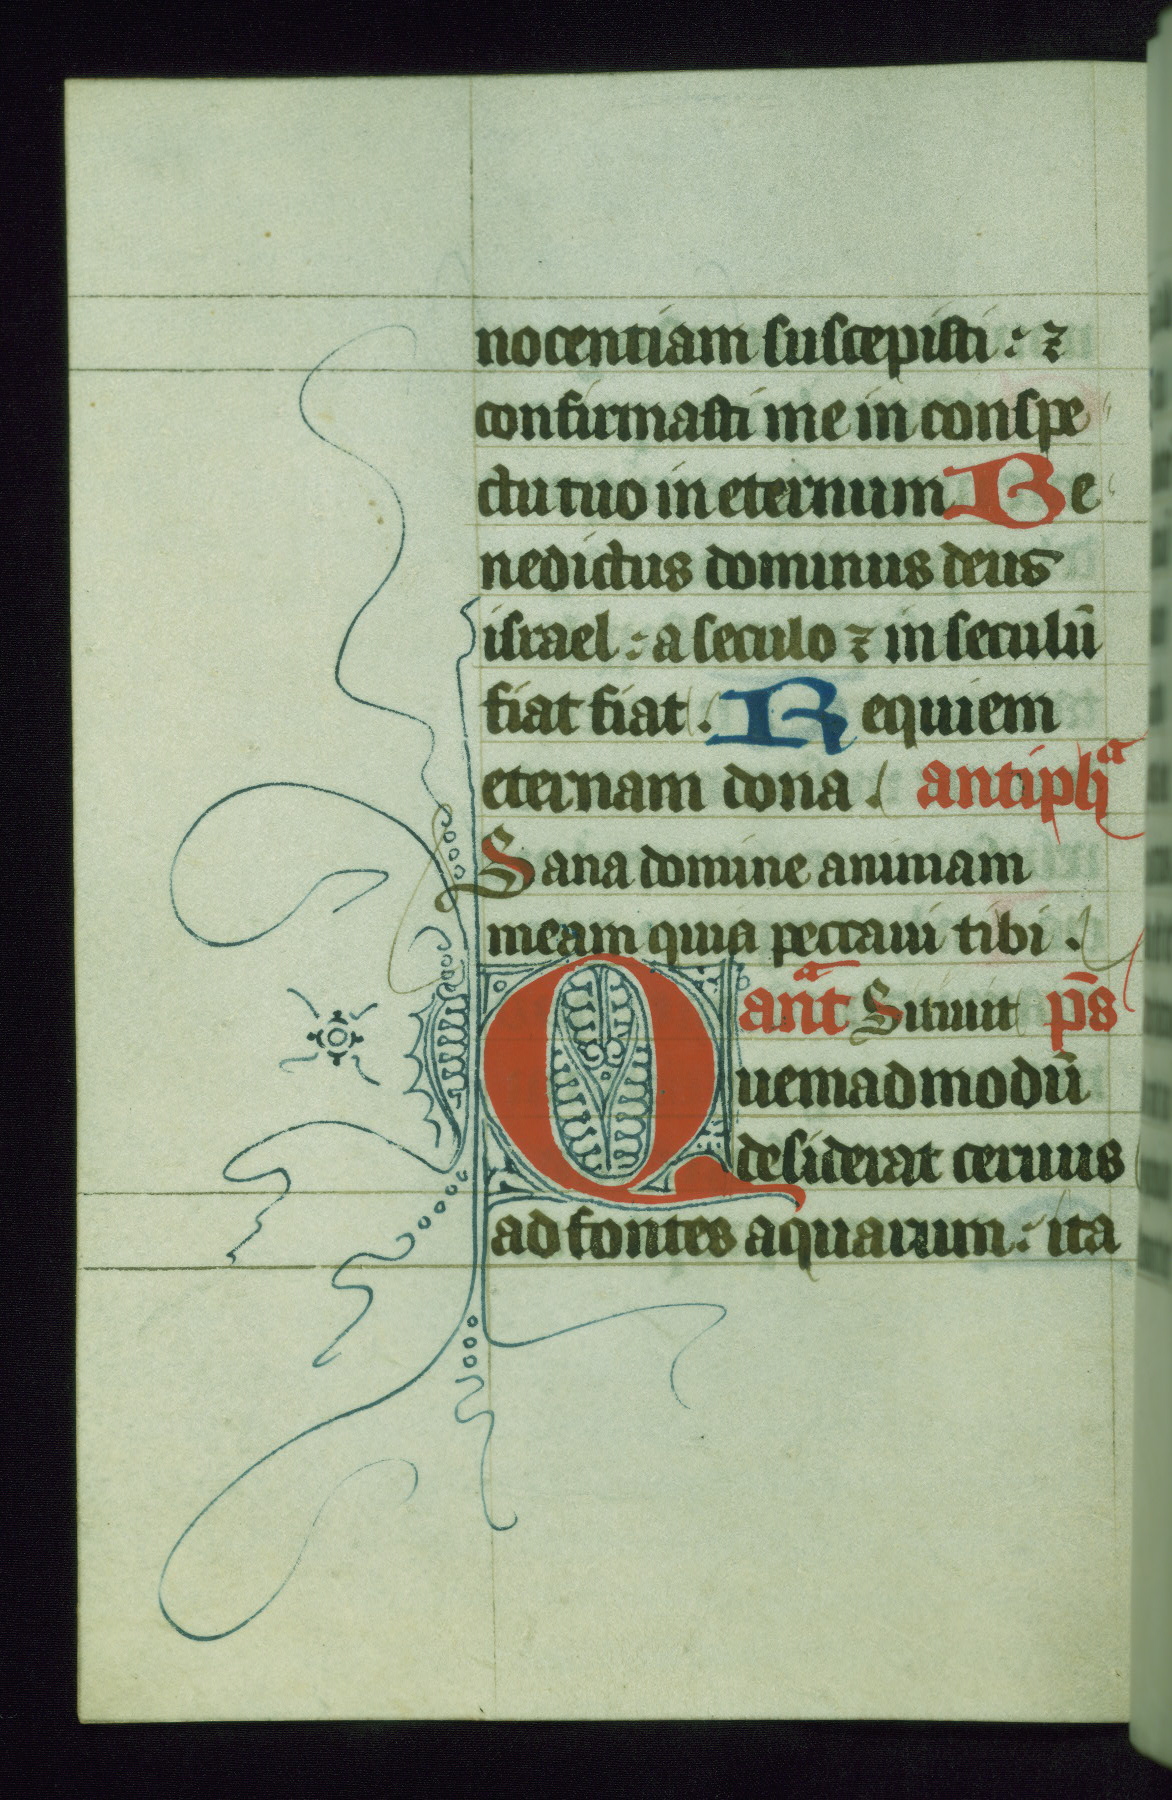 nocentiam suscepisti : ⁊
confirmasti me in conspe
ctu tuo in eternum Be
nedictus dominus deus
israel : a seculo ⁊ in seculū
fiat fiat . Requiem
eternam dona . antiphᵃ
Sana domine animam
meam quia peccaui tibi .
anᵃt Sitiuit p̄s
Quemadmodū
desiderat ceruus
ad fontes aquarum : ita